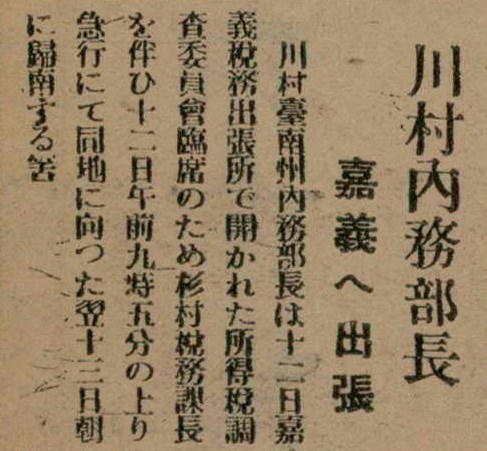 川村內務部長
嘉義へ出張
川村臺南州內務部長は十二日嘉
義稅務出張所で開かれた所得稅調
査委員會臨席のため杉村稅務課長
を伴ひ十二日午前九時五分の上り
急行にて同地に向つた翌十三日朝
に歸南する筈